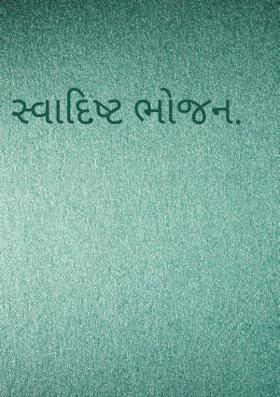 સ્વાદિષ્ટ ભોજન.